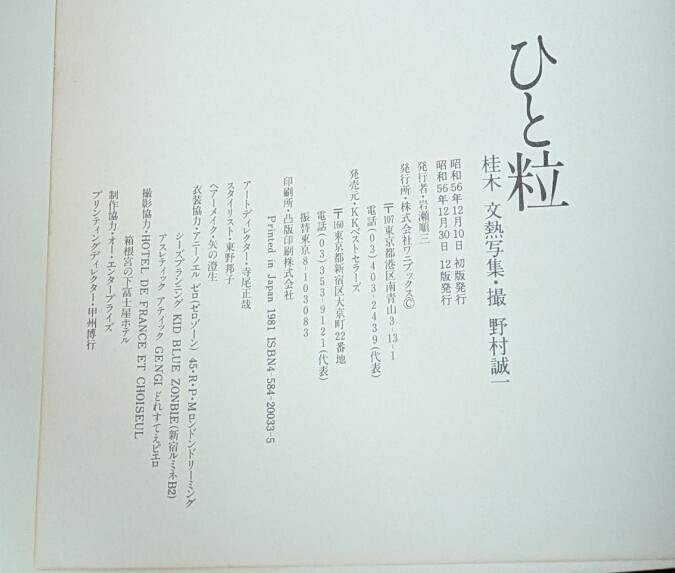 ひと粒
桂木 文熱写集・撮 野村誠一
昭和56年12月10日 初版発行
昭和56年12月30日 12版発行
発行者・岩瀬順三
発行所・株式会社ワニブックス©
〒107東京都港区南青山3-13-1
電話(03)403-2439(代表)
発売元・KKベストセラーズ
〒160東京都新宿区大京町22番地
電話(03)353-9121(代表)
振替東京8-103083
印刷所・凸版印刷株式会社
Printed in Japan 1981 ISBN4-584-20033-5
アートディレクター・寺尾正哉
スタイリスト・東野邦子
ヘアーメイク・矢の澄生
衣装協力・アニーノエル ゼロ(ゼロゾーン) 45・R・P・Mロンドンドリーミング
シーズプランニング KID BLUE ZONBIE(新宿ルミネB2)
アスレティック アティック GENGI どれすてえピエロ
撮影協力・HOTEL DE FRANCE ET CHOISEUL
箱根宮の下富士屋ホテル
制作協力・オー・エンタープライズ
プリンティングディレクター・甲州博行